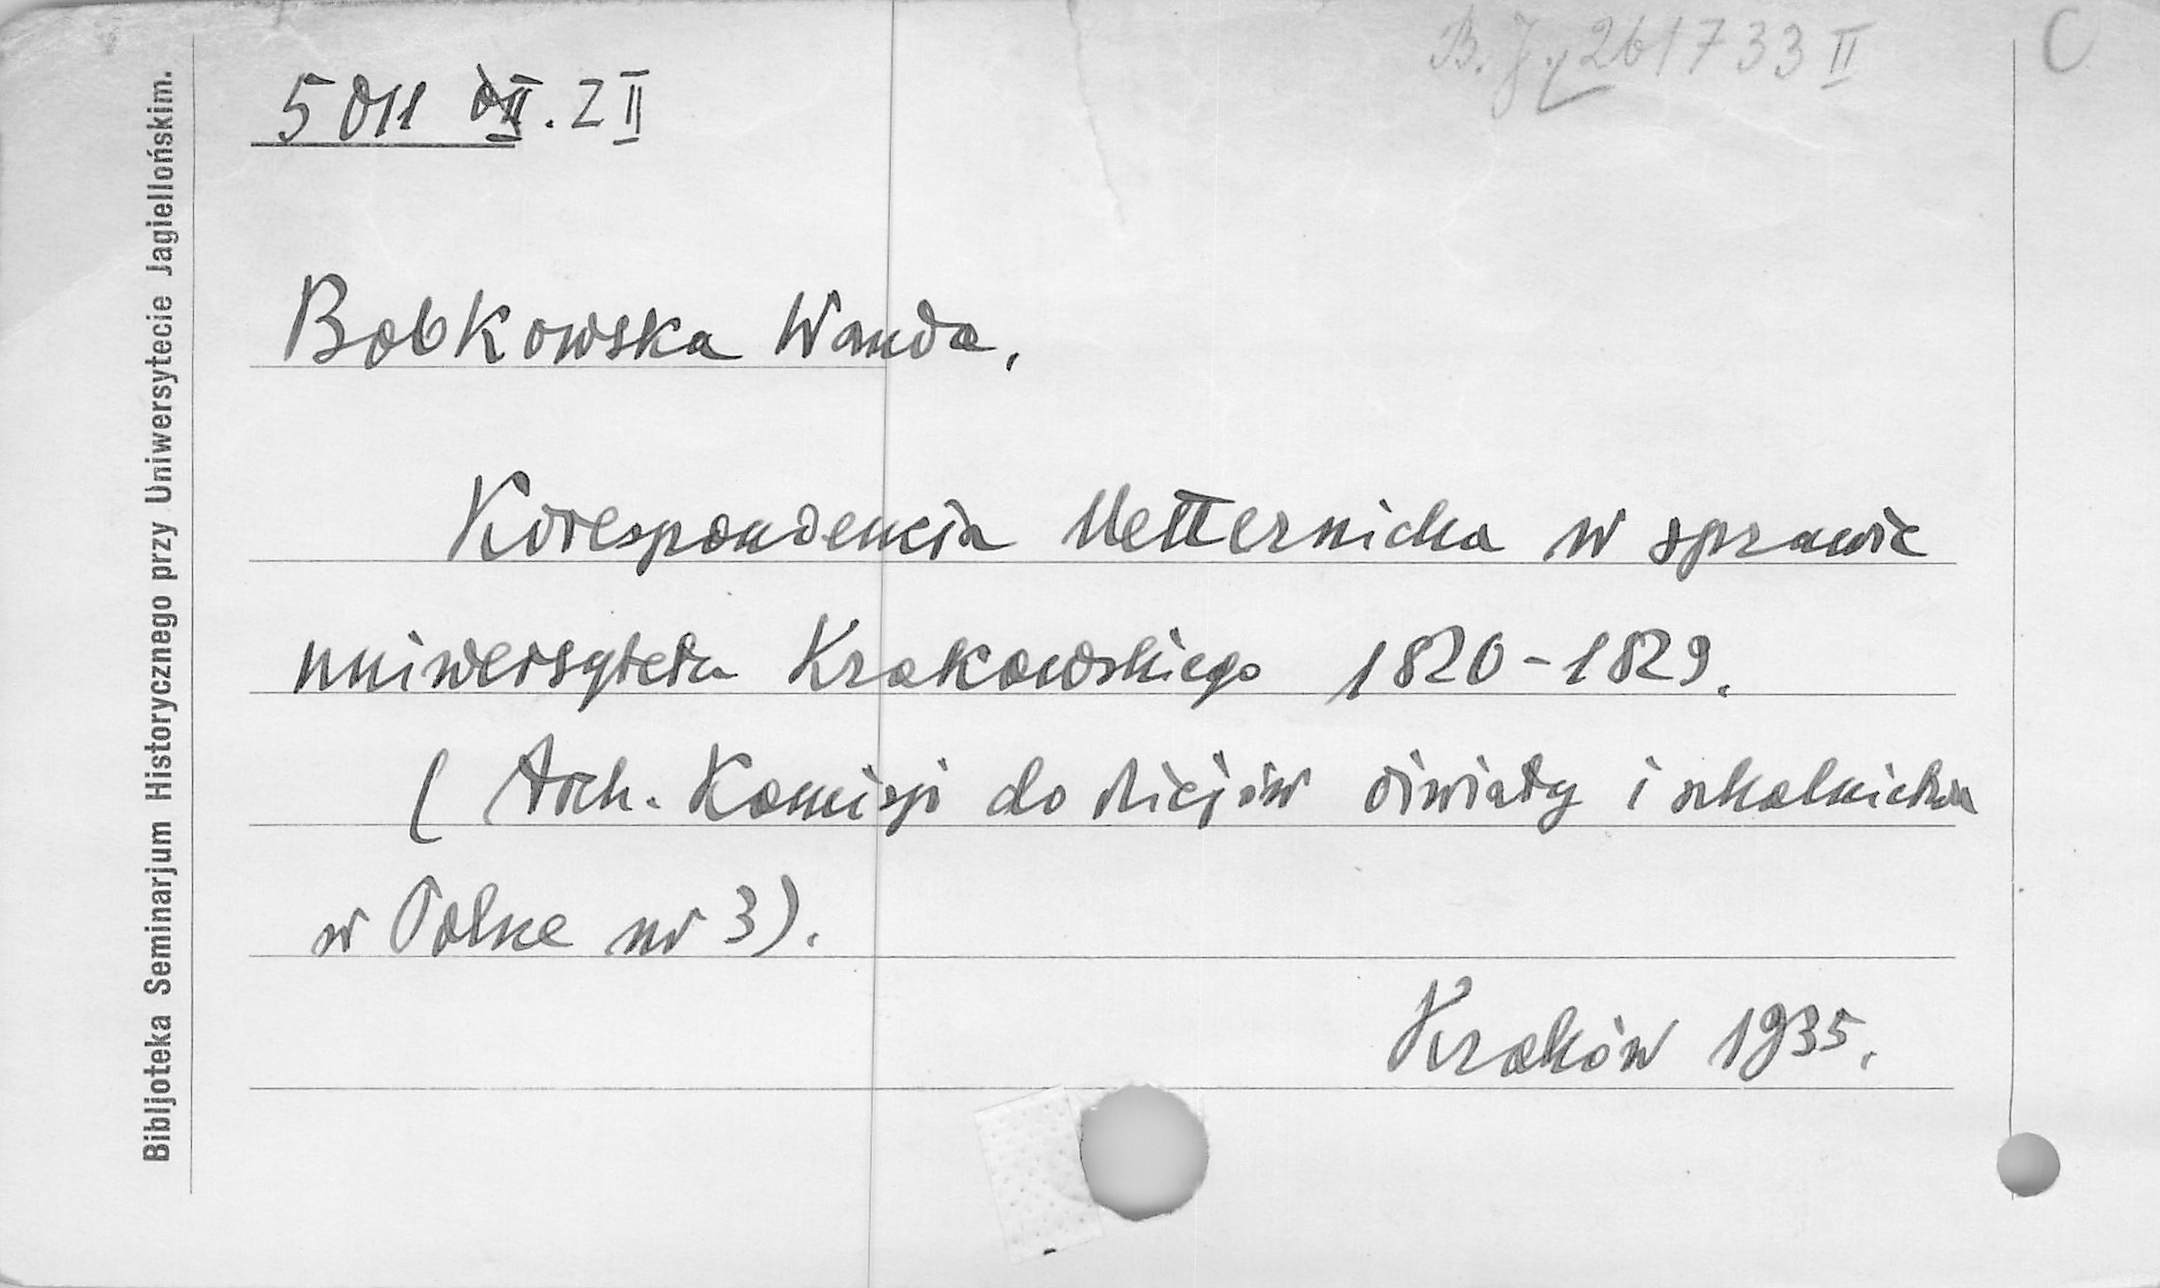 B. J. 261733 II
C
5011 II. Z II
Bobkowska Wanda.
Korespondencja Metternicha w sprawie
uniwersytetu Krakowskiego 1820-1829.
( Arch. Komisji do dziejów oświaty i szkolnictwa
w Polsce nr 3).
Kraków 1935.
Bibljoteka Seminarjum Historycznego przy Uniwersytecie Jagiellońskim.